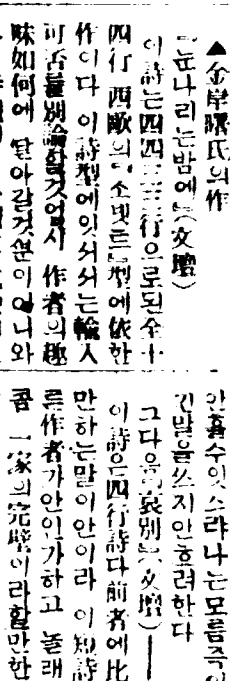 ▲金岸曙氏의作
「눈나리는밤에」(文壇)
이詩는四四三三行으로된全十
四行 西歐의「소넷트」型에依한
作이다 이詩型에잇서서는輸入
可否를別論할것업시 作者의趣
味如何에 달아갈것뿐이어니와
안흘수잇스랴나는모름즉이
긴말을쓰지안흐려한다
그다음「哀別」(文壇)——
이詩은四行詩다前者에比
만하는말이안이라 이短詩
른作者가안인가하고 놀래
콤 一家의完璧이라할만한